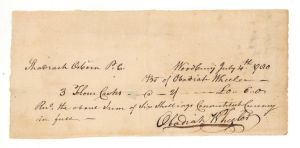 Shadrach Osborn P.C. Woodbury July 4th 1780
Bot of Obadiah Wheeler
3 Flour Casks @ 2/ £0..6..0
Recd the above Sum of Six Shillings Connecticut Currency
in full — Obadiah Wheeler